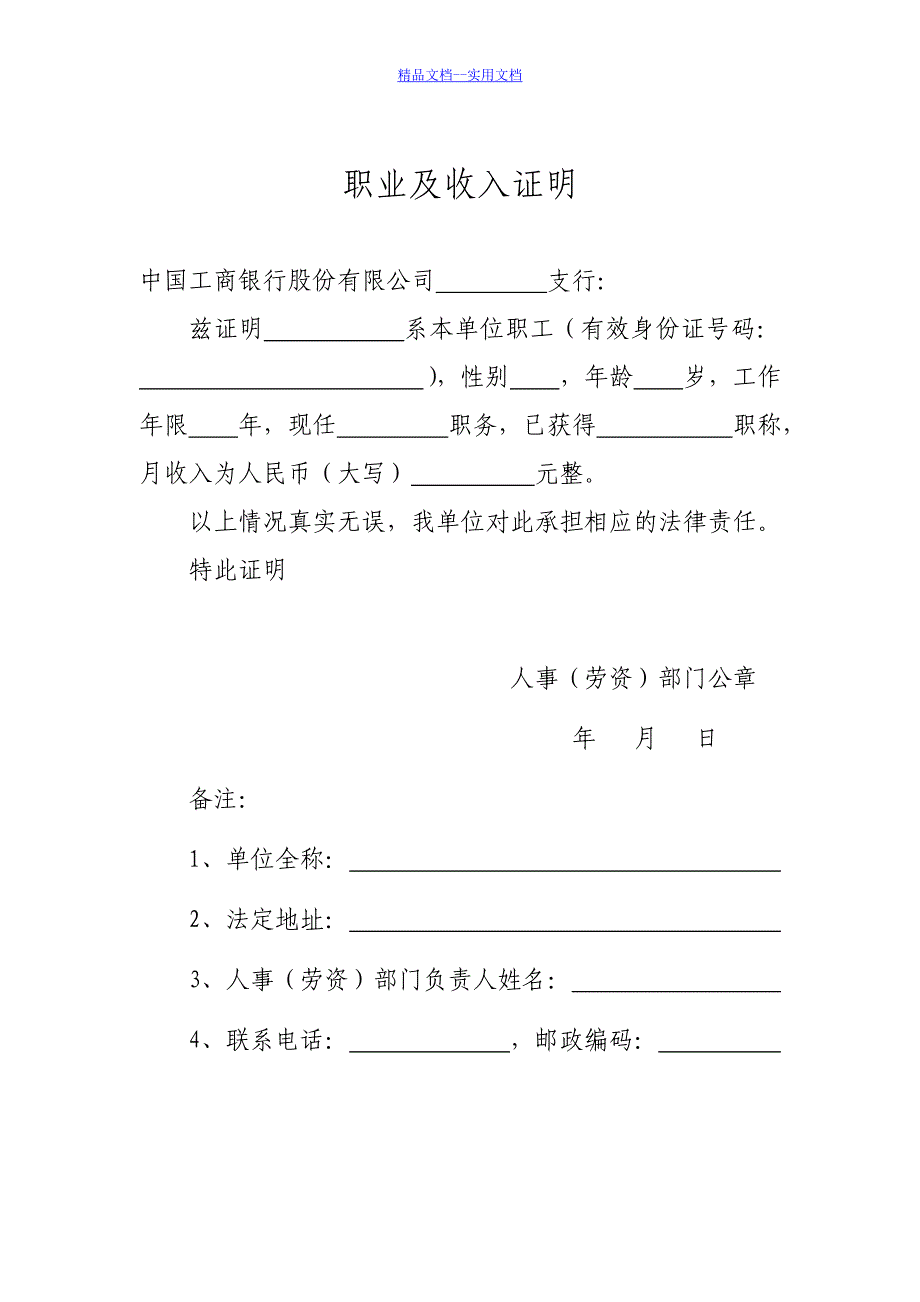 精品文档--实用文档
职业及收入证明
中国工商银行股份有限公司_________支行：
兹证明___________系本单位职工（有效身份证号码：
_______________________），性别____，年龄____岁，工作
年限____年，现任_________职务，已获得___________职称，
月收入为人民币（大写）__________元整。
以上情况真实无误，我单位对此承担相应的法律责任。
特此证明
人事（劳资）部门公章
年 月 日
备注：
1、单位全称：___________________________________
2、法定地址：___________________________________
3、人事（劳资）部门负责人姓名：_________________
4、联系电话：_____________，邮政编码：__________